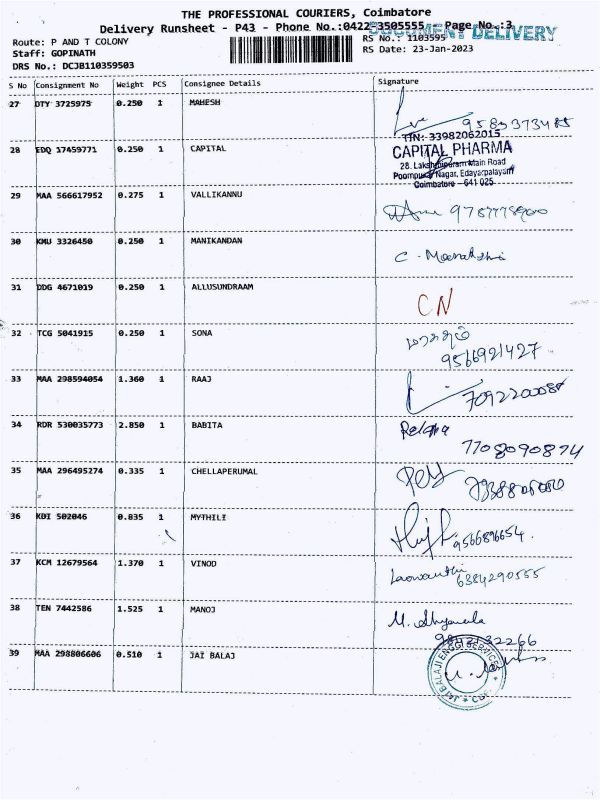 THE PROFESSIONAL COURIERS, Coimbatore
Delivery Runsheet - P43 - Phone No.:0422-3505555 - Page No.:3
DOCUMENT DELIVERY
Route: P AND T COLONY
RS No.: 1103595
Staff: GOPINATH
RS Date: 23-Jan-2023
DRS No.: DCJB110359503
S No Consignment No Weight PCS Consignee Details Signature
27 DTY 3725975 0.250 1 MAHESH
28 EDQ 17459771 0.250 1 CAPITAL
TIN: 33982062015
CAPITAL PHARMA
28, Lakshmipuram Main Road
Poompukar Nagar, Edayarpalayam
Coimbatore - 641 025
29 MAA 566617952 0.275 1 VALLIKANNU
30 KMU 3326450 0.250 1 MANIKANDAN
C. Meenakshi
31 DDG 4671019 0.250 1 ALLUSUNDRAAM
CN
32 TCG 5041915 0.250 1 SONA
9566921427
33 MAA 298594054 1.360 1 RAAJ
34 RDR 530035773 2.850 1 BABITA
7708090874
35 MAA 296495274 0.335 1 CHELLAPERUMAL
36 KDI 502046 0.835 1 MYTHILI
9566896654.
37 KCM 12679564 1.370 1 VINOD
6384290555
38 TEN 7442586 1.525 1 MANOJ
M. Shyamala
9842132266
39 MAA 298806606 0.510 1 JAI BALAJ
JAI BALAJI ENGG SERVICES ★ CBE ★